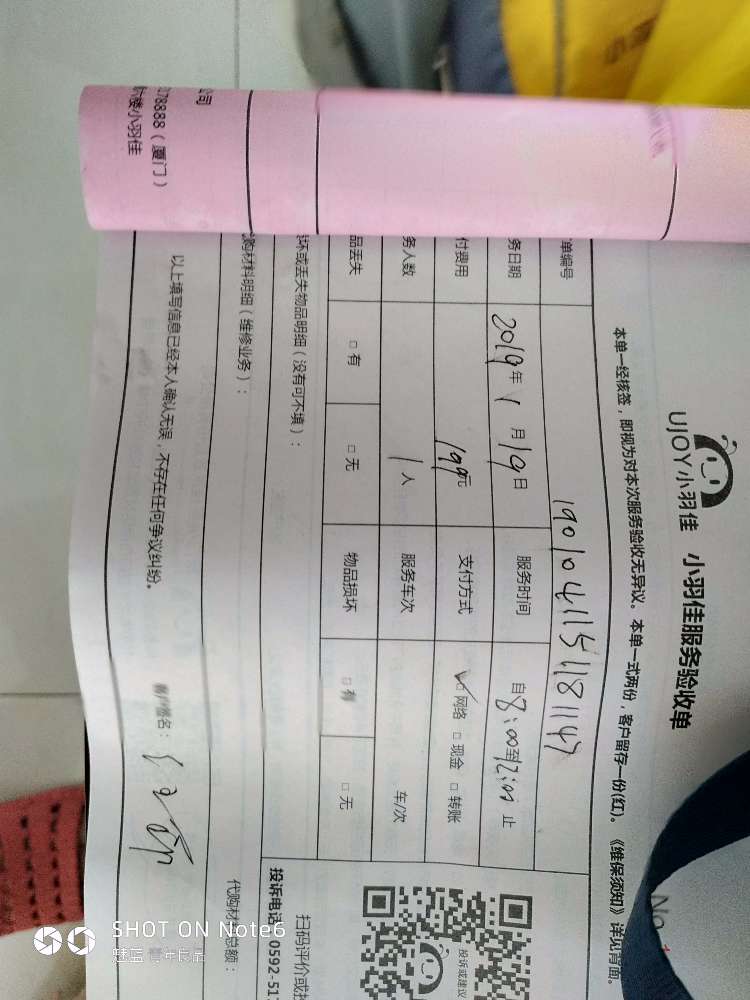 UJOY小羽佳 小羽佳服务验收单
No.
本单一经核签，即视为对本次服务验收无异议。本单一式两份，客户留存一份(红)。《维保须知》详见背面。
单编号 1901041151181147
务日期 2019年1月19日 服务时间 自8:00到12:00止
付费用 199元 支付方式 ✓□网络 □现金 □转账
务人数 1人 服务车次 车/次
品丢失 □有 □无 物品损坏 □有 □无
坏或丢失物品明细（没有可不填）：
购材料明细（维修业务）： 代购材料总额：
以上填写信息已经本人确认无误，不存在任何争议纠纷。
签名：
投诉或建议
扫码评价或投
投诉电话 0592-517
公司
078888（厦门）
楼小羽佳
SHOT ON Note6
魅蓝 青年良品